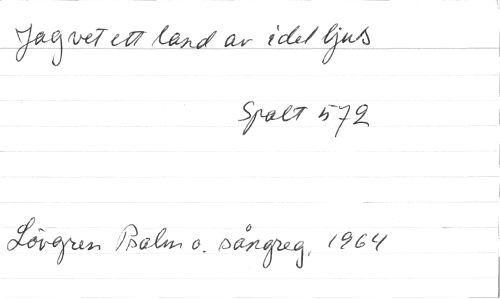 Jag vet ett land av idel ljus
Spalt 572
Lövgren Psalm o. sångreg. 1964